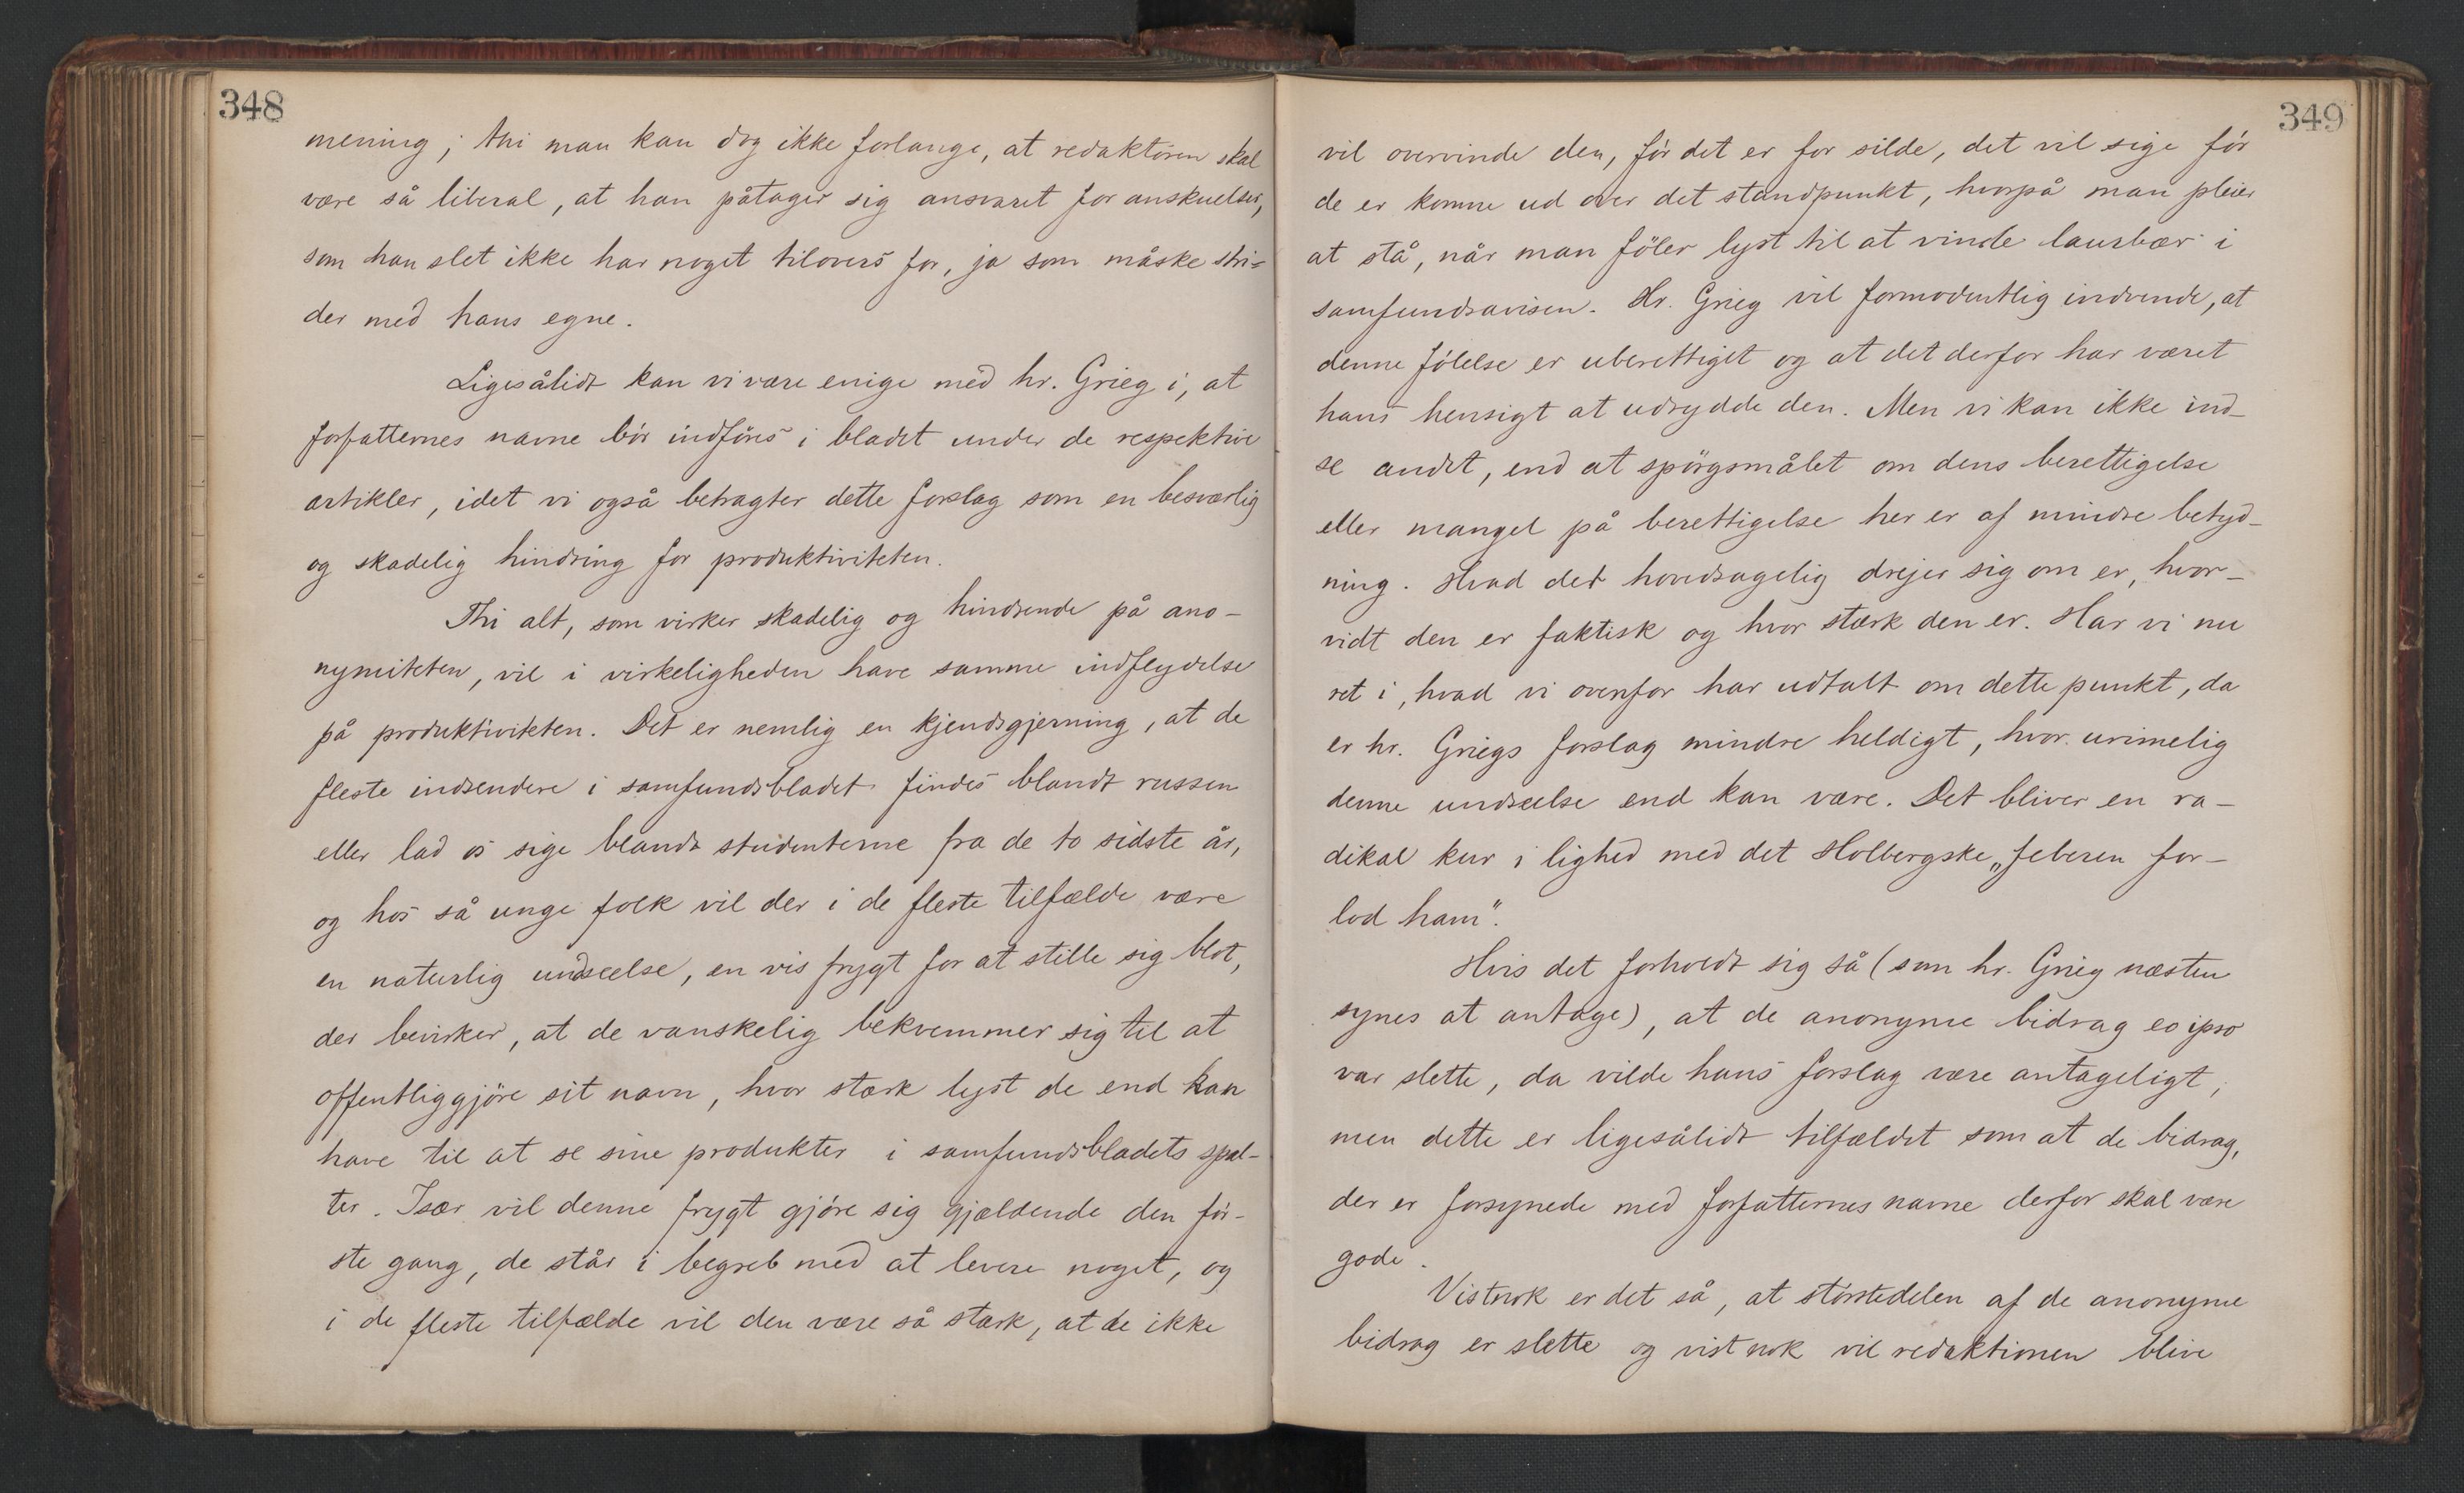 348
mening; thi man kan dog ikke forlange, at redaktören skal
være så liberal, at han påtager sig ansvaret for anskuelser,
som han slet ikke har noget tilovers for, ja som måske stri=
der med hans egne.
Ligesålidt kan vi være enige med hr. Grieg i, at
forfatternes navne bör indföres i bladet under de respektive
artikler, idet vi også betragter dette forslag som en besværlig
og skadelig hindring for produktiviteten.
Thi alt, som virker skadelig og hindrende på ano-
nymiteten, vil i virkeligheden have samme indflydelse
på produktiviteten. Det er nemlig en kjendsgjerning, at de
fleste indsendere i samfundsbladet findes blandt russen
eller lad os sige blandt studenterne fra de to sidste år,
og hos så unge folk vil der i de fleste tilfælde være
en naturlig undseelse, en vis frygt for at stille sig blot,
der bevirker, at de vanskelig bekvemmer sig til at
offentliggjöre sit navn, hvor stærk lyst de end kan
have til at se sine produkter i samfundsbladets spal-
ter. Især vil denne frygt gjöre sig gjældende den för-
ste gang, de står i begreb med at levere noget, og
i de fleste tilfælde vil den være så stærk, at de ikke
349
vil overvinde den, för det er for silde, det vil sige för
de er komne ud over det standpunkt, hvorpå man pleier
at stå, når man föler lyst til at vinde laurbær i
samfundsavisen. Hr. Grieg vil formodentlig indvende, at
denne fölelse er uberettiget og at det derfor har været
hans hensigt at udrydde den. Men vi kan ikke ind-
se andet, end at spörgsmålet om dens berettigelse
eller mangel på berettigelse her er af mindre betyd-
ning. Hvad det hovedsagelig drejer sig om er, hvor-
vidt den er faktisk og hvor stærk den er. Har vi nu
ret i, hvad vi ovenfor har udtalt om dette punkt, da
er hr. Griegs forslag mindre heldigt, hvor urimelig
denne undseelse end kan være. Det bliver en ra-
dikal kur i lighed med det Holbergske „feberen for-
lod ham".
Hvis det forholdt sig så (som hr. Grieg næsten
synes at antage), at de anonyme bidrag eo ipso
var slette, da vilde hans forslag være antageligt;
men dette er ligesålidt tilfældet som at de bidrag,
der er forsynede med forfatternes navne derfor skal være
gode.
Vistnok er det så, at störstedelen af de anonyme
bidrag er slette og vist nok vil redaktionen blive